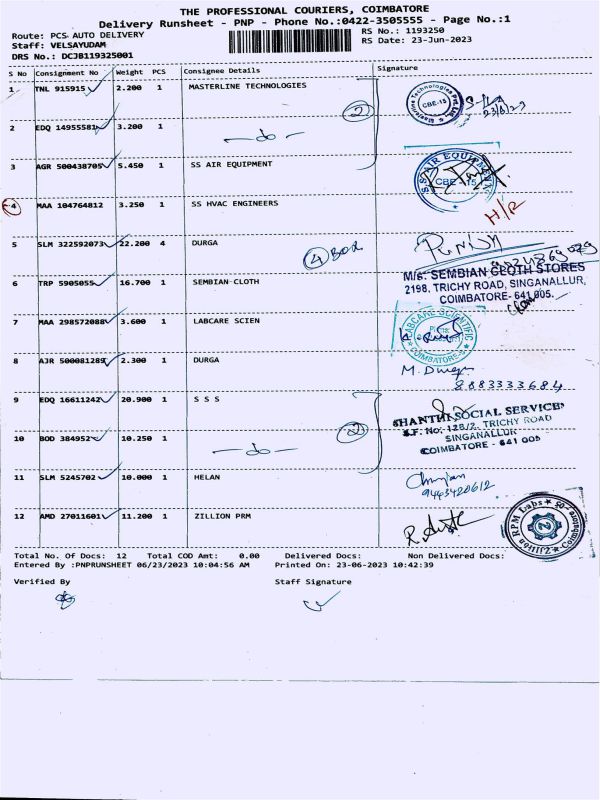 THE PROFESSIONAL COURIERS, COIMBATORE
Delivery Runsheet - PNP - Phone No.:0422-3505555 - Page No.:1
Route: PCS AUTO DELIVERY RS No.: 1193250
Staff: VELSAYUDAM RS Date: 23-Jun-2023
DRS No.: DCJB119325001
S No Consignment No Weight PCS Consignee Details Signature
1 TNL 915915 2.200 1 MASTERLINE TECHNOLOGIES
CBE-15
23/6/23
2
2 EDQ 14955581 3.200 1 -do-
3 AGR 500438705 5.450 1 SS AIR EQUIPMENT
SS AIR EQUIPMENT
CBE - 15
4 MAA 104764812 3.250 1 SS HVAC ENGINEERS H/R
5 SLM 322592073 22.200 4 DURGA 4 BOX
6 TRP 5905055 16.700 1 SEMBIAN-CLOTH
M/s. SEMBIAN CLOTH STORES
2198, TRICHY ROAD, SINGANALLUR,
COIMBATORE- 641 005.
7 MAA 298572088 3.600 1 LABCARE SCIEN
LABCARE SCIENTIFIC
COIMBATORE
8 AJR 500081289 2.300 1 DURGA M. Durga
8883333684
9 EDQ 16611242 20.900 1 S S S
SHANTHI SOCIAL SERVICE
S.F. No. 128/2, TRICHY ROAD
SINGANALLUR
COIMBATORE - 641 005
2
10 BOD 384952 10.250 1 -do-
11 SLM 5245702 10.000 1 HELAN
9443420612
12 AMD 27011601 11.200 1 ZILLION PRM
Zillion RPM Labs
Coimbatore -05
Total No. Of Docs: 12 Total COD Amt: 0.00 Delivered Docs: Non Delivered Docs:
Entered By :PNPRUNSHEET 06/23/2023 10:04:56 AM Printed On: 23-06-2023 10:42:39
Verified By Staff Signature